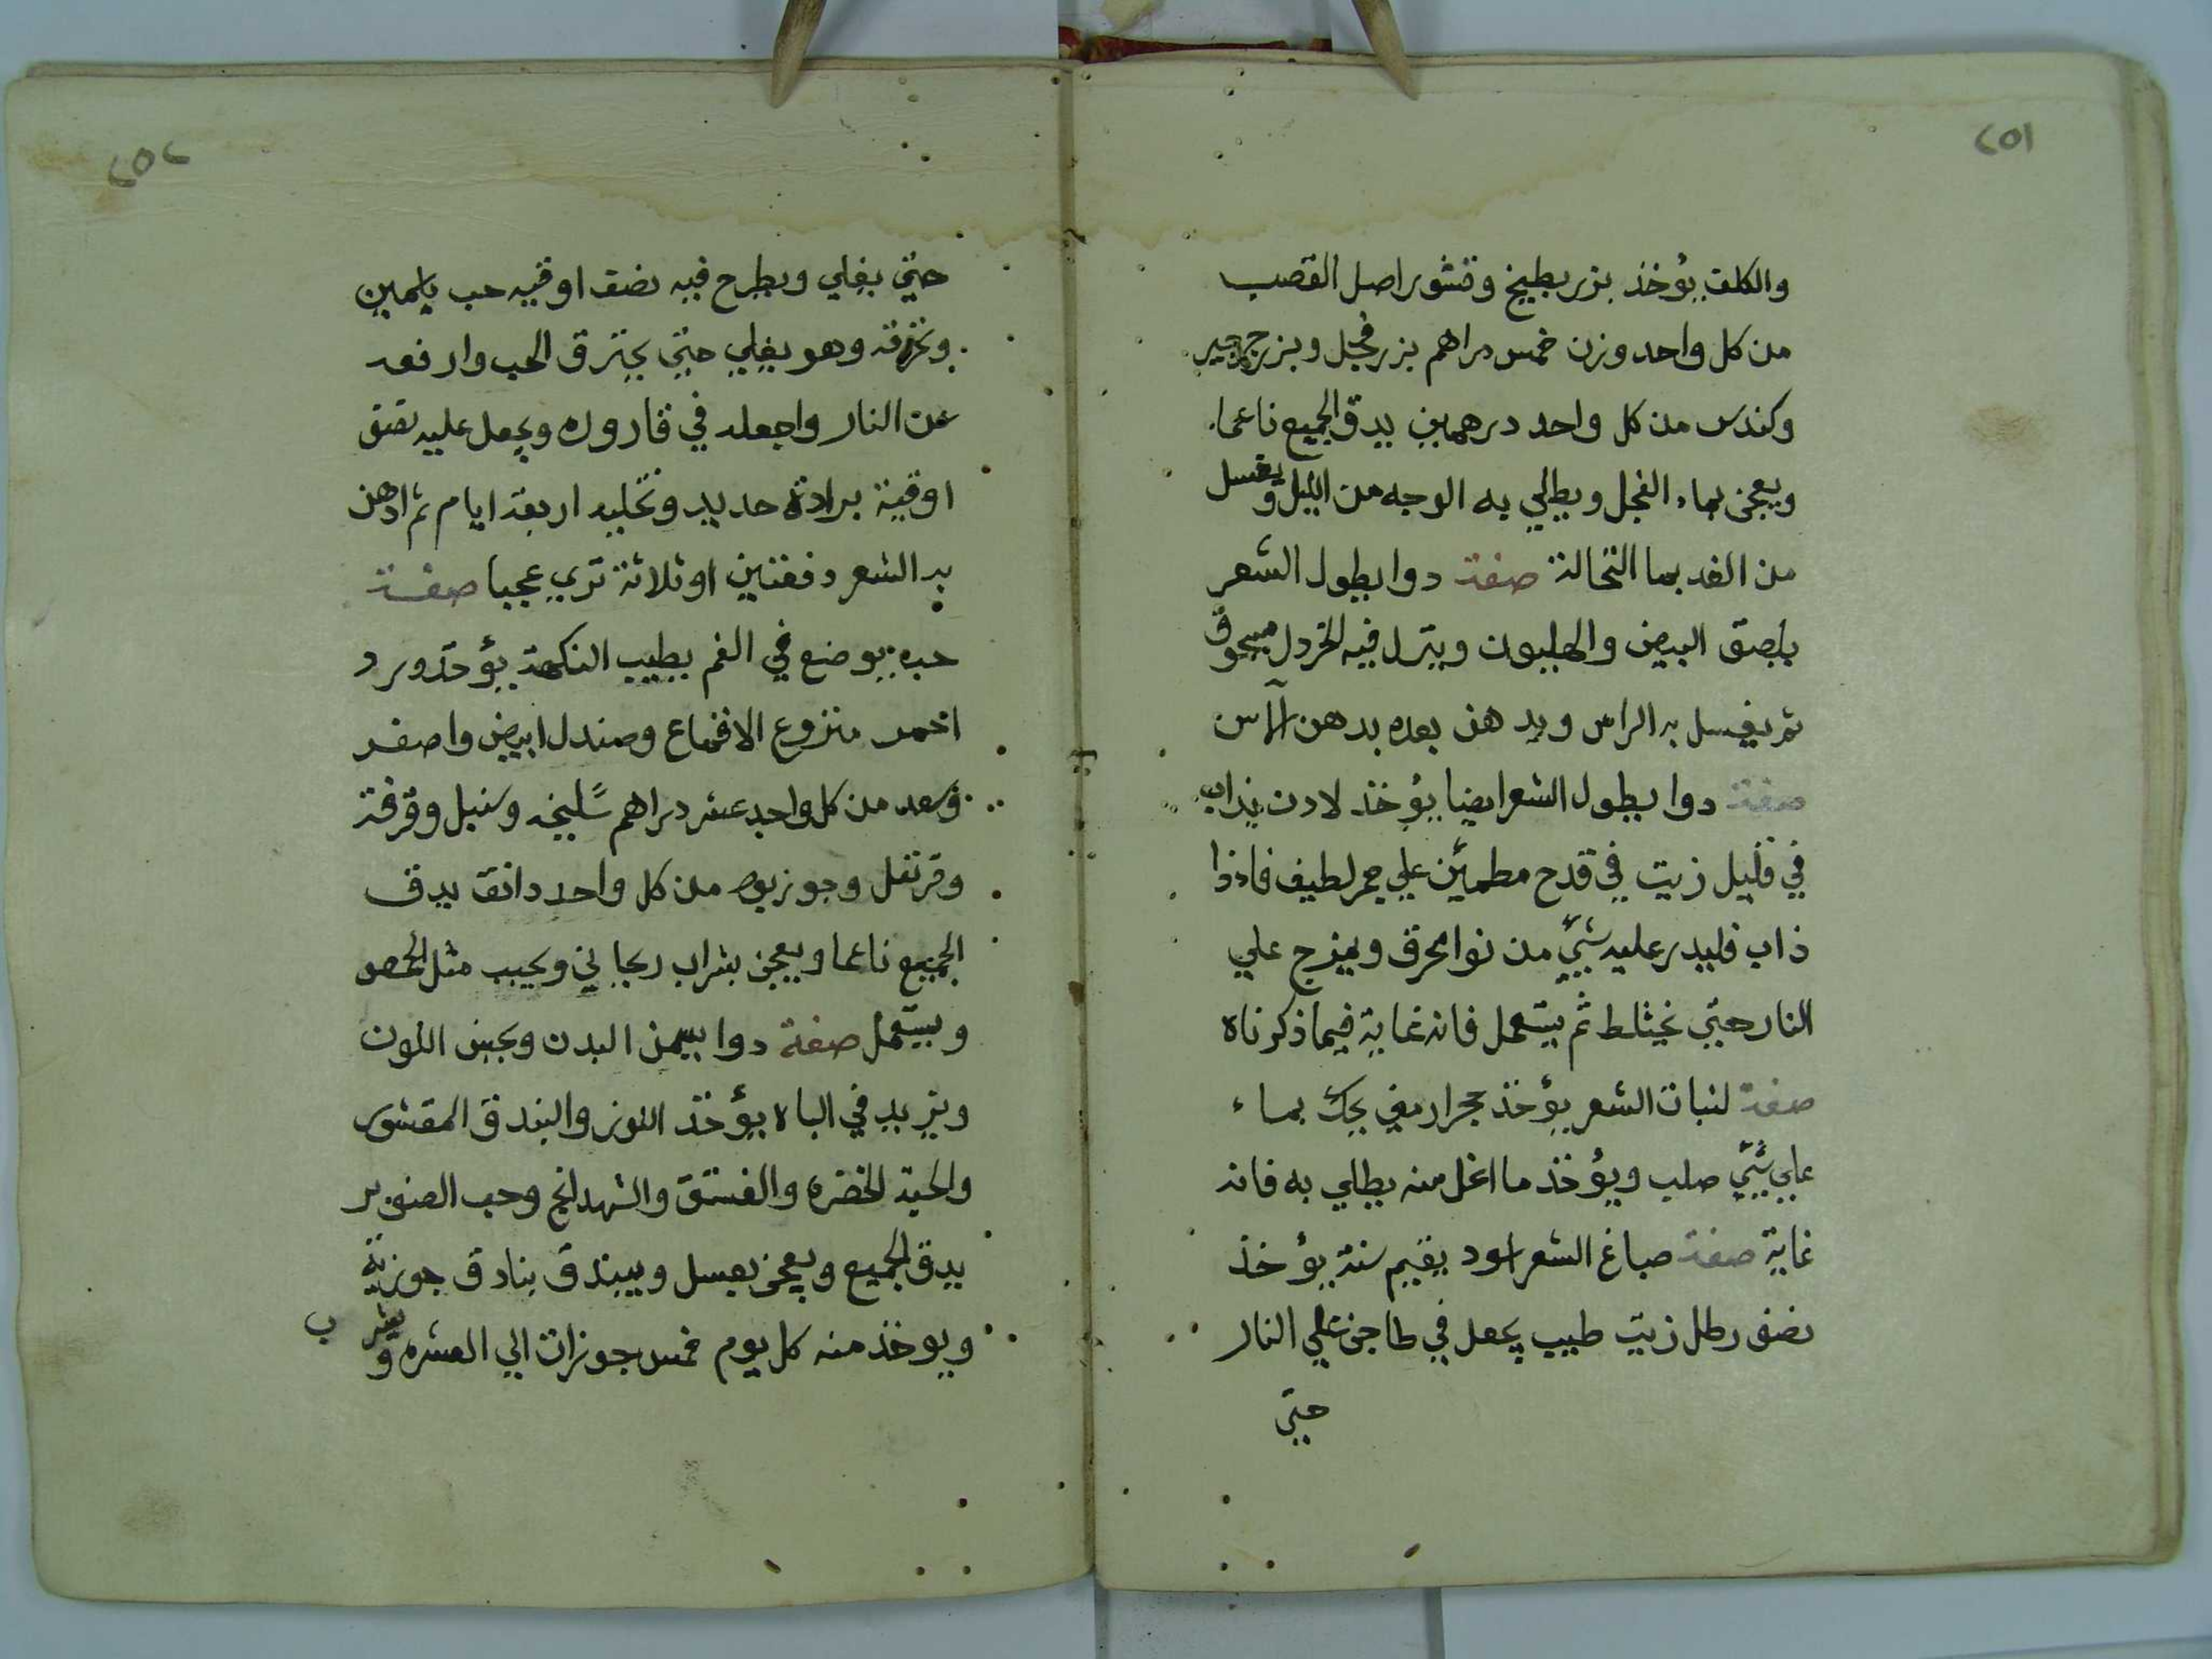 ٢٥١
والكلف يؤخذ بزر بطيخ وقشور اصل القصب
من كل واحد وزن خمس دراهم بزر فجل وبزر جرجير
وكندس من كل واحد درهمين يدق الجميع ناعما
ويعجن بماء الفجل ويطلي به الوجه من الليل ويغسل
من الغد بما النخالة صفة دوا يطول الشعر
البيض والهليون وينزل فيه الخردل مسحوق
ثم يغسل به الراس ويدهن بعده بدهن الآس
صفة دوا يطول الشعر ايضا يؤخذ لادن يذاب
في قليل زيت في قدح مطمئن علي جمر لطيف فاذا
ذاب فليدر عليه شيٍ من نوا محرق ويمزج علي
النار حتي يختلط ثم يستعمل فانه غاية فيما ذكرناه
صفة لنبات الشعر يؤخذ حجر ارمني يحك بماء
علي شيٍ صلب ويؤخذ ما انحل منه يطلي به فانه
غاية صفة صباغ الشعر اسود يقيم سنة يؤخذ
نصف رطل زيت طيب يجعل في طاجن علي النار
حتي
٢٥٢
حتي يغلي ويطرح فيه نصف اوقيه حب ياسمين
وتحركه وهو يغلي حتي يحترق الحب وارفعه
عن النار واجعله في قاروره ويجعل عليه نصف
اوقية برادة حديد وتخليه اربعة ايام ثم ادهن
به الشعر دفعتين او ثلاثة تري عجبا صفة
حبه يوضع في الفم يطيب النكهة يؤخذ ورد
احمر منزوع الاقماع وصندل ابيض واصفر
وسعد من كل واحد عشر دراهم سليخه وسنبل وقرفة
وقرنفل وجوزبوه من كل واحد دانق يدق
الجميع ناعما ويعجن بشراب ريحاني ويحبب مثل الحمص
ويستعمل صفة دوا يسمن البدن ويحسن اللون
ويزيد في الباه يؤخذ اللوز والبندق المقشور
والحبة الخضره والفستق والشهدانج وحب الصنوبر
يدق الجميع ويعجن بعسل ويبندق بنادق جوزية
ويوخذ منه كل يوم خمس جوزات الي العشره ويشرب